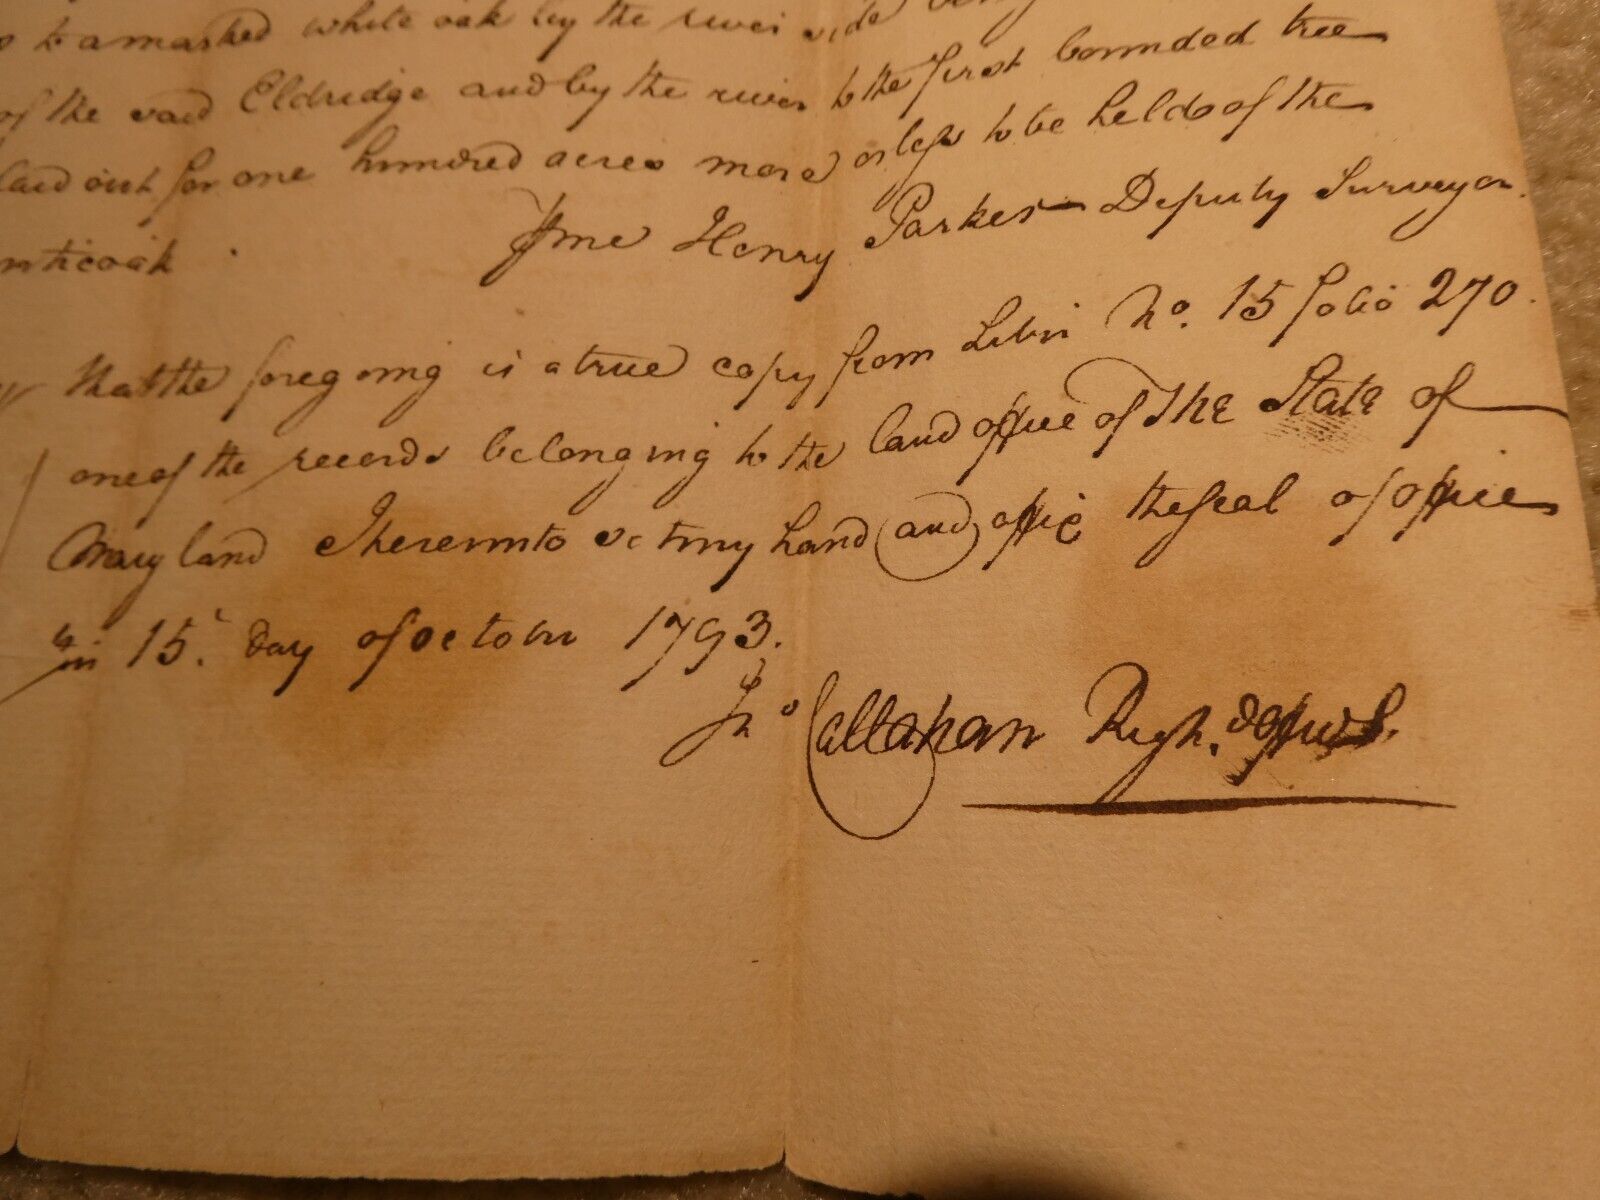 to a marked white oak by the river side
of the said Eldridge and by the river to the first bounded tree
laid out for one hundred acres more or less to be held of the
nticoak
℘ me Henry Parker Deputy Surveyor.
that the foregoing is a true copy from Libri No. 15 folio 270.
one of the records belonging to the land office of The State of
Maryland I hereunto set my hand and affix the seal of office
15. Day of October 1793.
Jno Callahan Regr.